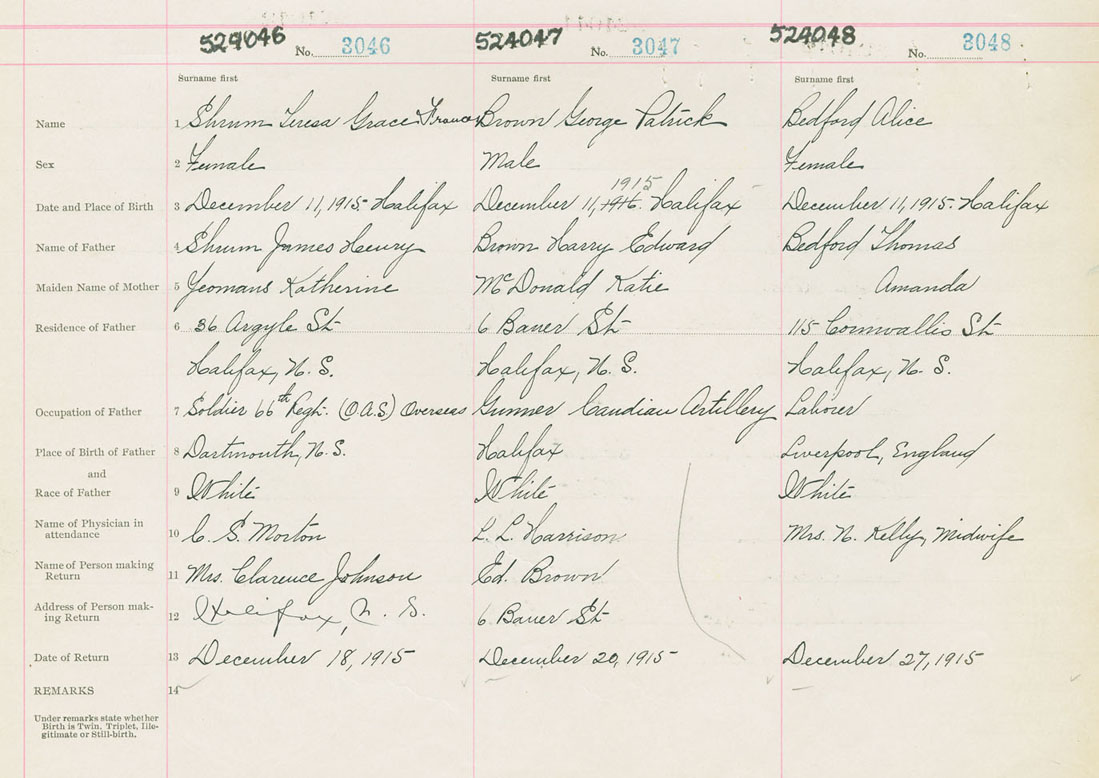 524046 No. 3046 524047 No. 3047 524048 No. 3048
Surname first Surname first Surname first
Name 1 Shrum Teresa Grace Frances Brown George Patrick Bedford Alice
Sex 2 Female Male Female
1915
Date and Place of Birth 3 December 11, 1915 Halifax December 11, 1916. Halifax December 11, 1915 Halifax
Name of Father 4 Shrum James Henry Brown Harry Edward Bedford Thomas
Maiden Name of Mother 5 Yeomans Katherine McDonald Katie Amanda
Residence of Father 6 36 Argyle St 6 Bauer St 115 Cornwallis St
Halifax, N. S. Halifax, N. S. Halifax, N. S.
Occupation of Father 7 Soldier 66th Regt. (O.A.S) Overseas Gunner Candian Artillery Laborer
Place of Birth of Father 8 Dartmouth, N. S. Halifax Liverpool, England
and
Race of Father 9 White White White
Name of Physician in
attendance 10 C. S. Morton L. L. Harrison Mrs. N. Kelly, Midwife
Name of Person making
Return 11 Mrs. Clarence Johnson Ed. Brown
Address of Person mak-
ing Return 12 Halifax, N. S. 6 Bauer St
Date of Return 13 December 18, 1915 December 20, 1915 December 27, 1915
REMARKS 14
Under remarks state whether
Birth is Twin, Triplet, Ille-
gitimate or Still-birth.